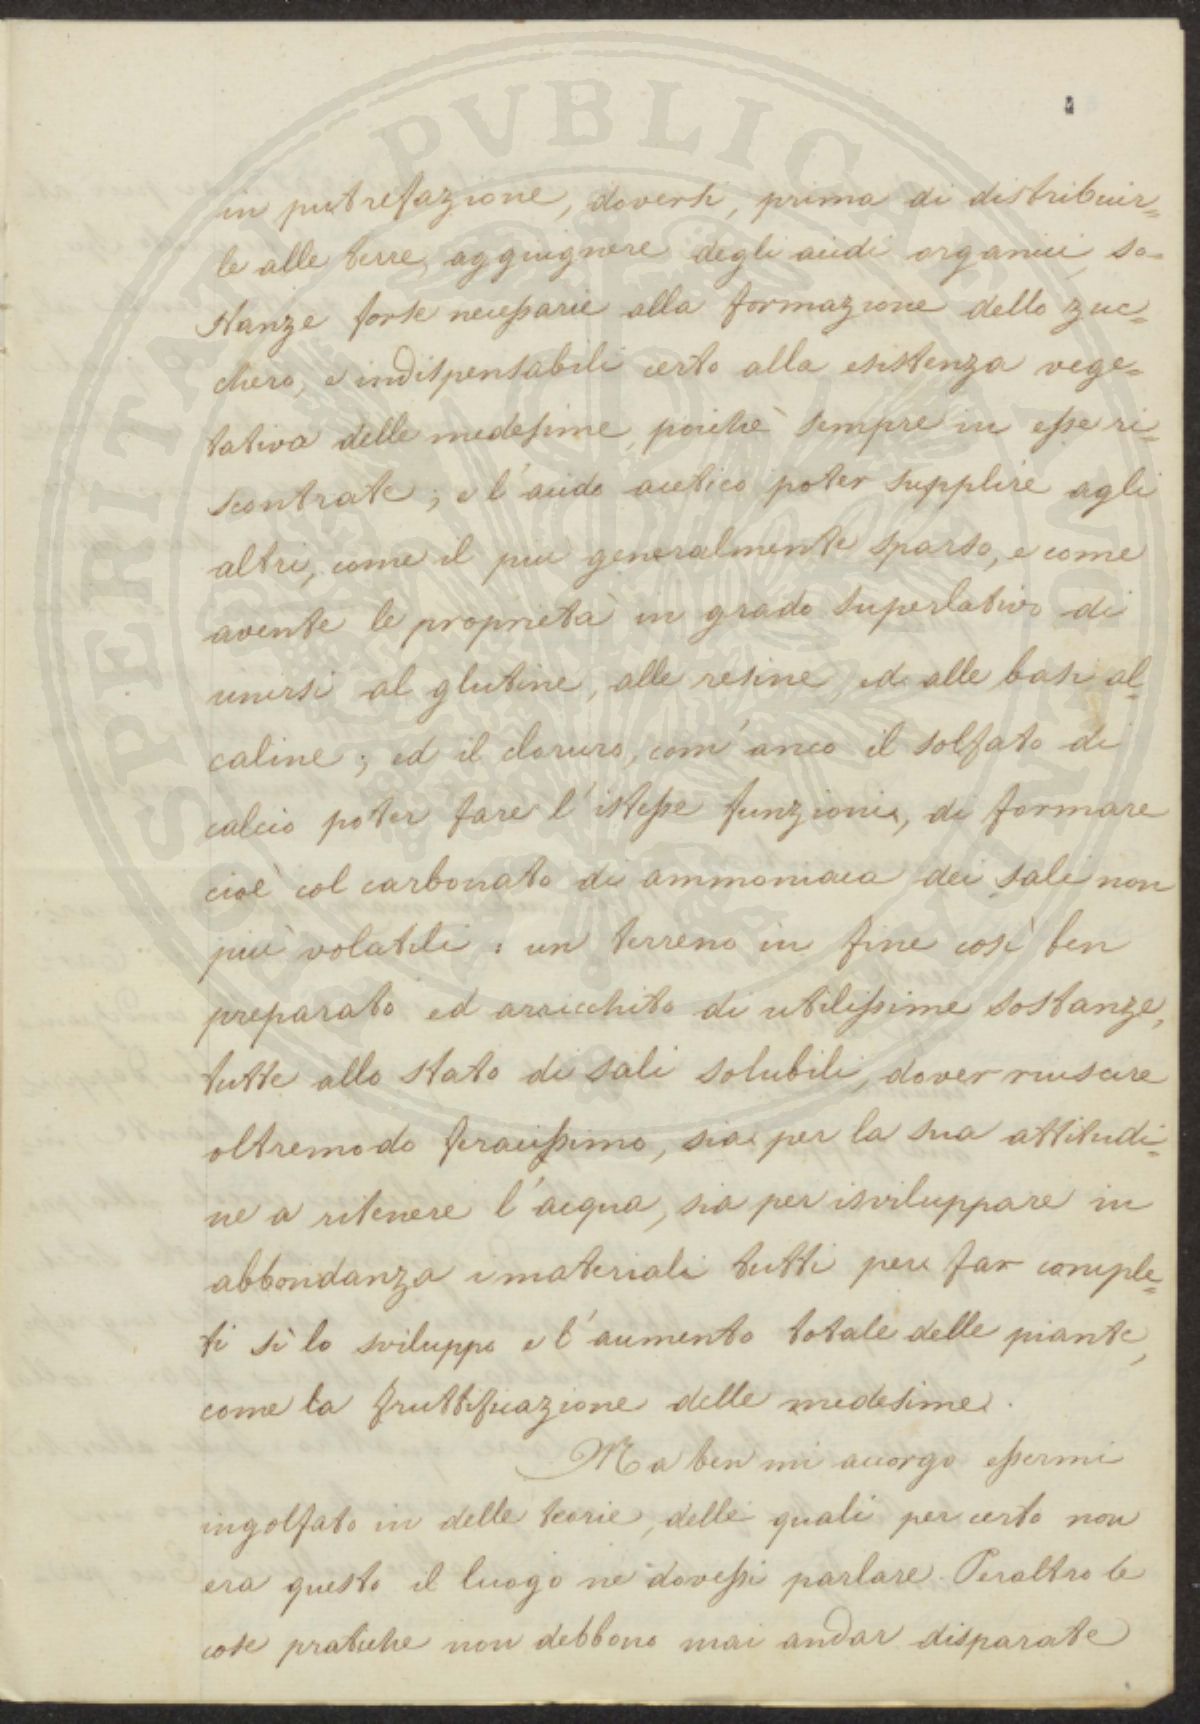 in putrefazione, doversi, prima di distribuir=
le alle terre, aggiugnere degli acidi organici, so=
stanze forse necessarie alla formazione dello zuc=
chero, e indispensabili certo alla esistenza vege=
tativa delle medesime, poichè sempre in esse ri=
scontrate; e l'acido acetico poter supplire agli
altri, come il piu generalmente sparso, e come
avente le proprietà in grado superlativo di
unirsi al glutine, alle resine, ed alle basi al=
caline; ed il cloruro, com'anco il solfato di
calcio poter fare l'istesse funzioni, di formare
cioè col carbonato di ammoniaca dei sali non
più volatili: un terreno in fine così ben
preparato ed arricchito di utilissime sostanze,
tutte allo stato di sali solubili, dover riuscire
oltremodo feracissimo, sia per la sua attitudi=
ne a ritenere l'acqua, sia per isviluppare in
abbondanza i materiali tutti per far comple=
ti sì lo sviluppo e l'aumento totale delle piante,
come la fruttificazione delle medesime.
Ma ben mi accorgo essermi
ingolfato in delle teorie, delle quali per certo non
era questo il luogo ne dovessi parlare. Peraltro le
cose pratiche non debbono mai andar disparate
SPERITATI PVBLICAE